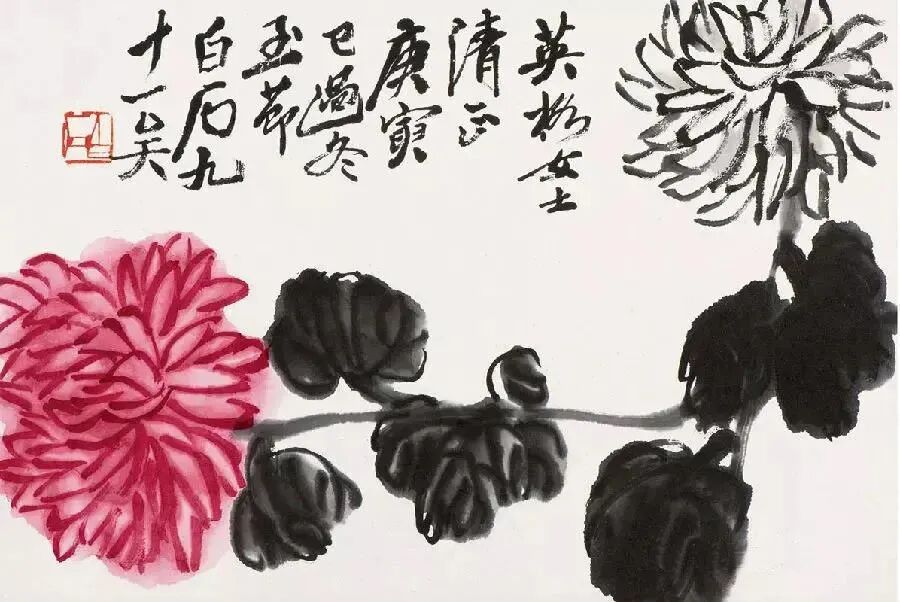 英女士
清正
庚寅
已過冬
至節
白石九
十一矣